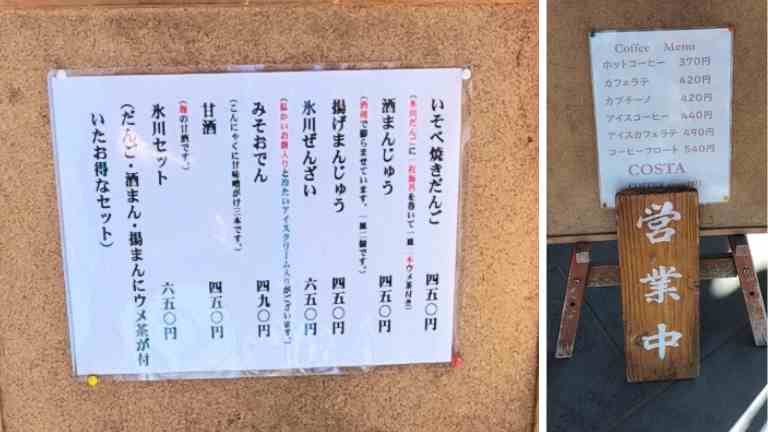 いそべ焼きだんご 四五〇円
(氷川だんごに一枚海苔を巻いて一皿二本ウメ茶付き)
酒まんじゅう 四五〇円
(酒種で膨らませています。一皿二個です。)
揚げまんじゅう 四五〇円
氷川ぜんざい 六五〇円
(温かいお餅入りと冷たいアイスクリーム入りがございます。)
みそおでん 四九〇円
(こんにゃくに甘味噌がけ三本です。)
甘酒 四五〇円
(麹の甘酒です。)
氷川セット 六五〇円
(だんご・酒まん・揚まんにウメ茶が付
いたお得なセット)
Coffee Menu
ホットコーヒー 370円
カフェラテ 420円
カプチーノ 420円
アイスコーヒー 440円
アイスカフェラテ 490円
コーヒーフロート 540円
COSTA
営業中